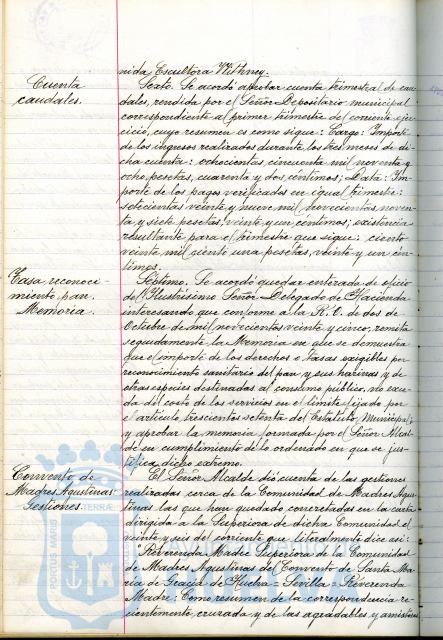 nida Escultora Withney.
Cuenta
caudales.
Sexto. Se acordó aprobar cuenta trimestral de cau-
dales, rendida por el Señor Depositario municipal
correspondiente al primer trimestre del corriente ejer-
cicio, cuyo resumen es como sigue: Cargo: Importe
de los ingresos realizados durante los tres meses de di-
cha cuenta: ochocientas, cincuenta mil noventa y
ocho pesetas, cuarenta y dos, céntimos; Data: Im-
porte de los pagos verificados en igual trimestre:
setecientas veinte y nueve mil, novecientas noven-
ta y siete pesetas, veinte y un céntimos; existencia
resultante para el trimestre que sigue: ciento
veinte mil ciento una pesetas, veinte y un cén-
timos.
Tasa, reconoci-
miento pan.
Memoria.
Séptimo. Se acordó quedar enterada de oficio
del Ilustrisimo Señor Delegado de Hacienda
interesando que conforme a la R.O. de dos de
Octubre de mil novecientos veinte y cinco, remita
seguidamente la Memoria en que se demuestra
que el importe de los derechos o tasas exigibles por
reconocimiento sanitario del pan y sus harinas y de
otras especies destinadas al consumo público, no exce-
da del costo de los servicios en el límite fijado por
el artículo trescientos setenta del Estatuto Municipal;
y aprobar la memoria formada por el Señor Alcal-
de en cumplimiento de lo ordenado en que se jus-
tifica dicho extremo.
Convento de
Madres Agustinas
Gestiones.
El Señor Alcalde dió cuenta de las gestiones
realizadas cerca de la Comunidad de Madres Agus-
tinas las que han quedado concretadas en la carta
dirigida a la Superiora de dicha Comunidad el
veinte y seis del corriente que literalmente dice así:
Reverenda Madre Superiora de la Comunidad
de Madres Agustinas del Convento de Santa Ma-
ria de Gracia de Huelva = Sevilla = Reverenda
Madre: Como resumen de la correspondencia re-
cientemente, cruzada y de las agradables y amistosas
PORTUS MARIS
TERRAE